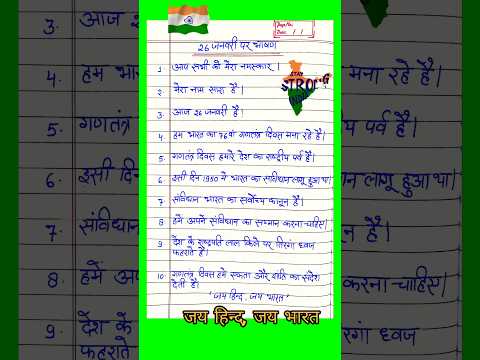 Page No.
Date: / /
26 जनवरी पर भाषण
1. आप सभी को मेरा नमस्कार।
2. मेरा नाम सारा है।
3. आज 26 जनवरी है।
4. हम भारत का 76वां गणतंत्र दिवस मना रहे है।
5. गणतंत्र दिवस हमारे देश का राष्ट्रीय पर्व है।
6. इसी दिन 1950 में भारत का संविधान लागू हुआ था।
7. संविधान भारत का सर्वोच्च कानून है।
8. हमें अपने संविधान का सम्मान करना चाहिए।
9. देश के राष्ट्रपति लाल किले पर तिरंगा ध्वज
फहराते है।
10. गणतंत्र दिवस हमें एकता और शांति का संदेश
देती है।
'जय हिन्द, जय भारत'
STAY
STRONG
INDIA
जय हिन्द, जय भारत
3. आज 2
4. हम भार
मना रहे है।
5. गणतंत्र
पर्व है।
6. इसी दिन
लागू हुआ था।
7. संविधान
है।
8. हमें अप
करना चाहिए।
9. देश के
रंगा ध्वज
फहराते